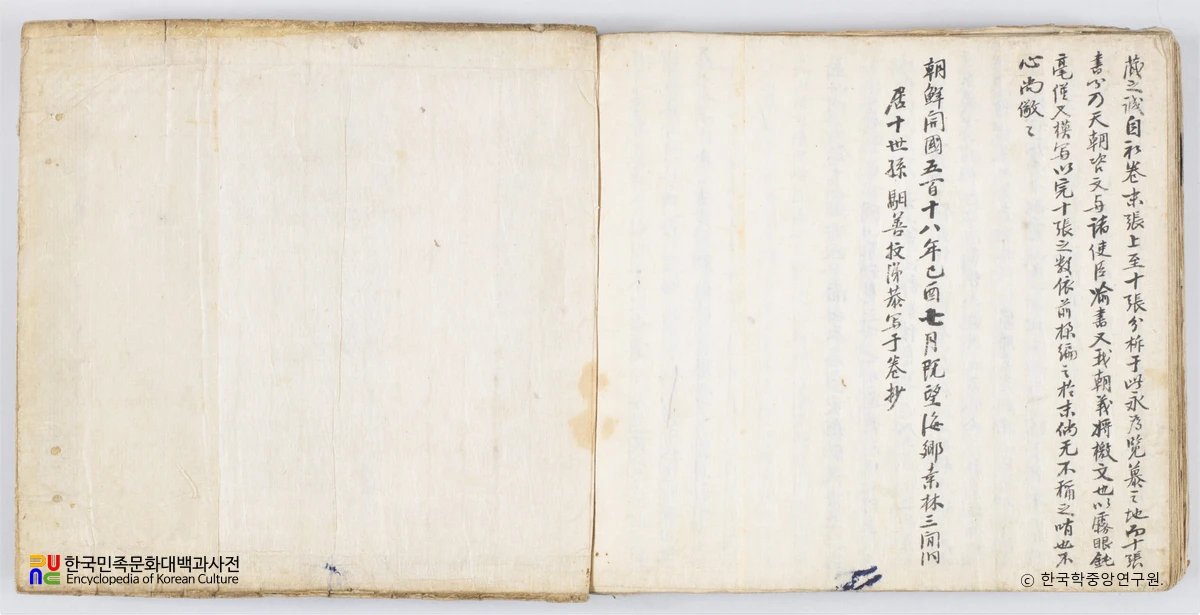 蔵之誠自初卷末張上至十張分柝于此永为覧慕之地而十張
書分乃天朝咨文与諸使臣喻書又我朝義将檄文也以霧眼鈍
毫僅又模写以完十張之数依前樣編之於末尙无不稱之啃也不
心尚儆々
朝鮮開國五百十八年已酉七月既望海鄉東林三閒
居十世孫 嗣善 恭写于卷抄
한국민족문화대백과사전
Encyclopedia of Korean Culture
© 한국학중앙연구원.